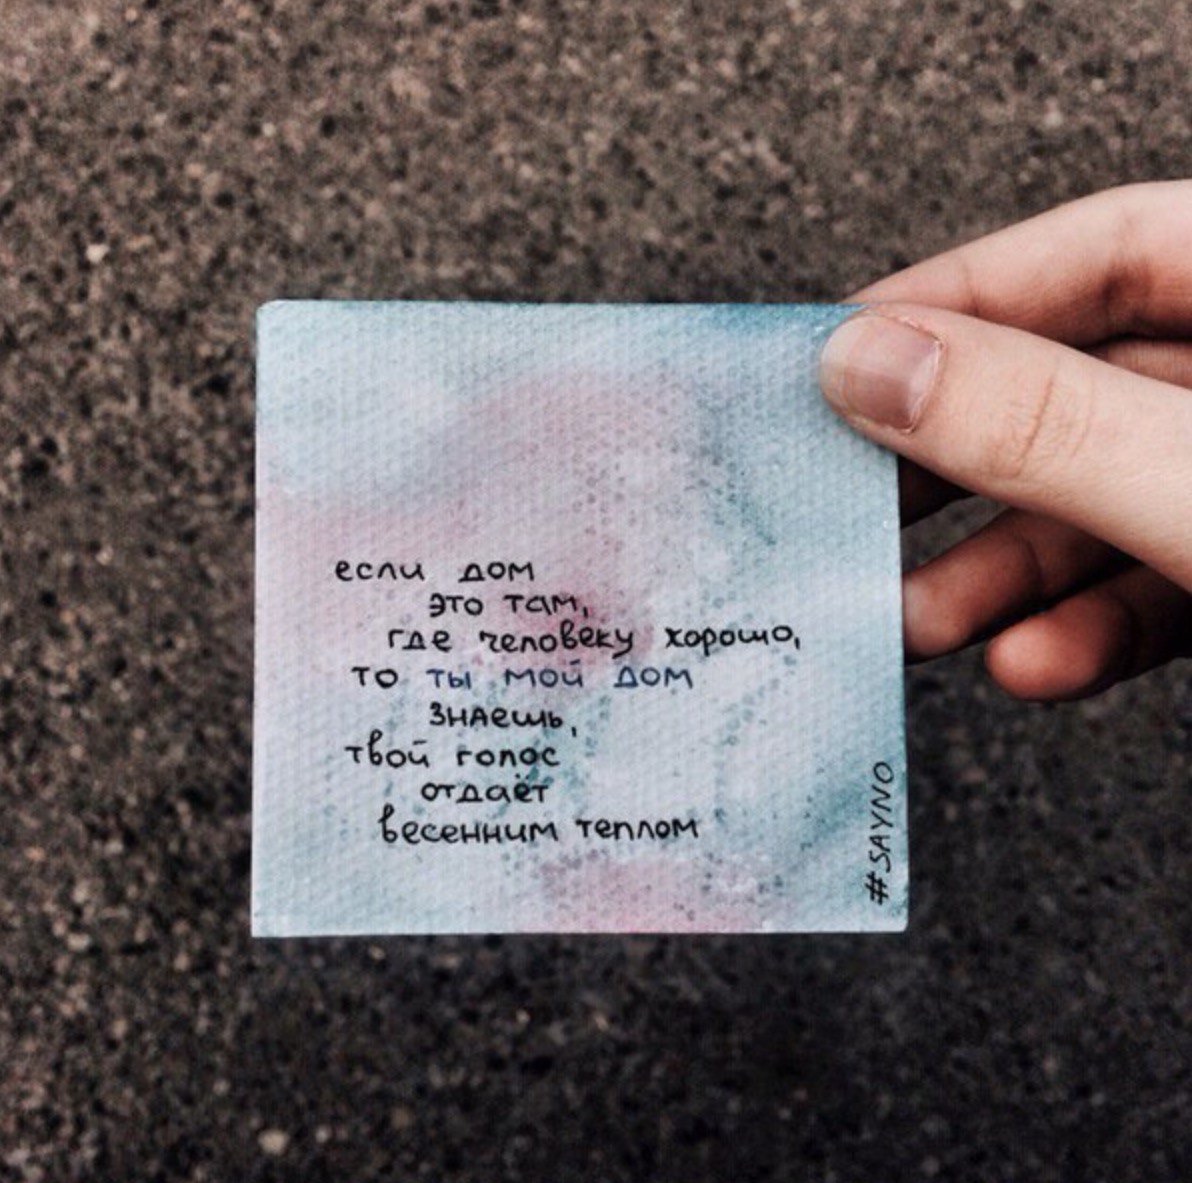 если дом
это там,
где человеку хорошо,
то ты мой дом
знаешь,
твой голос
отдаёт
весенним теплом
#SAYNO